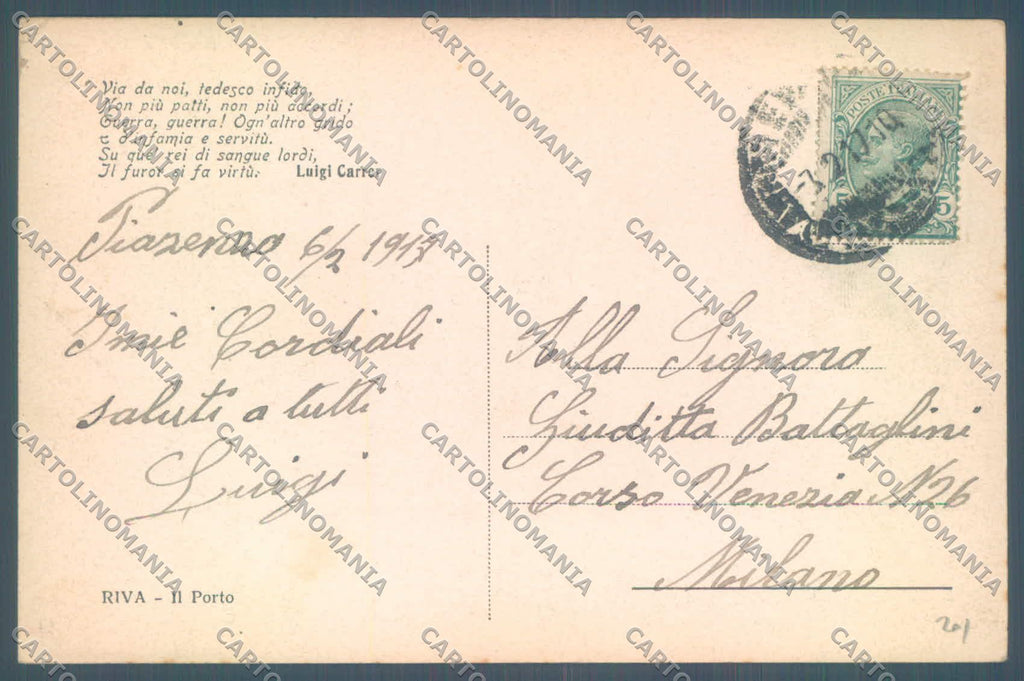 Via da noi, tedesco infido,
Non più patti, non più accordi;
Guerra, guerra! Ogn'altro grido
È d'infamia e servitù.
Su quei rei di sangue lordi,
Il furor si fa virtù.
Luigi Carrer
Piazenza 6/2 1917
I miei Cordiali
saluti a tutti
Luigi
RIVA - Il Porto
POSTE ITALIANE
5 5
Alla Signora
Giuditta Battaglini
Corso Venezia N 26
Milano
201
CARTOLINOMANIA